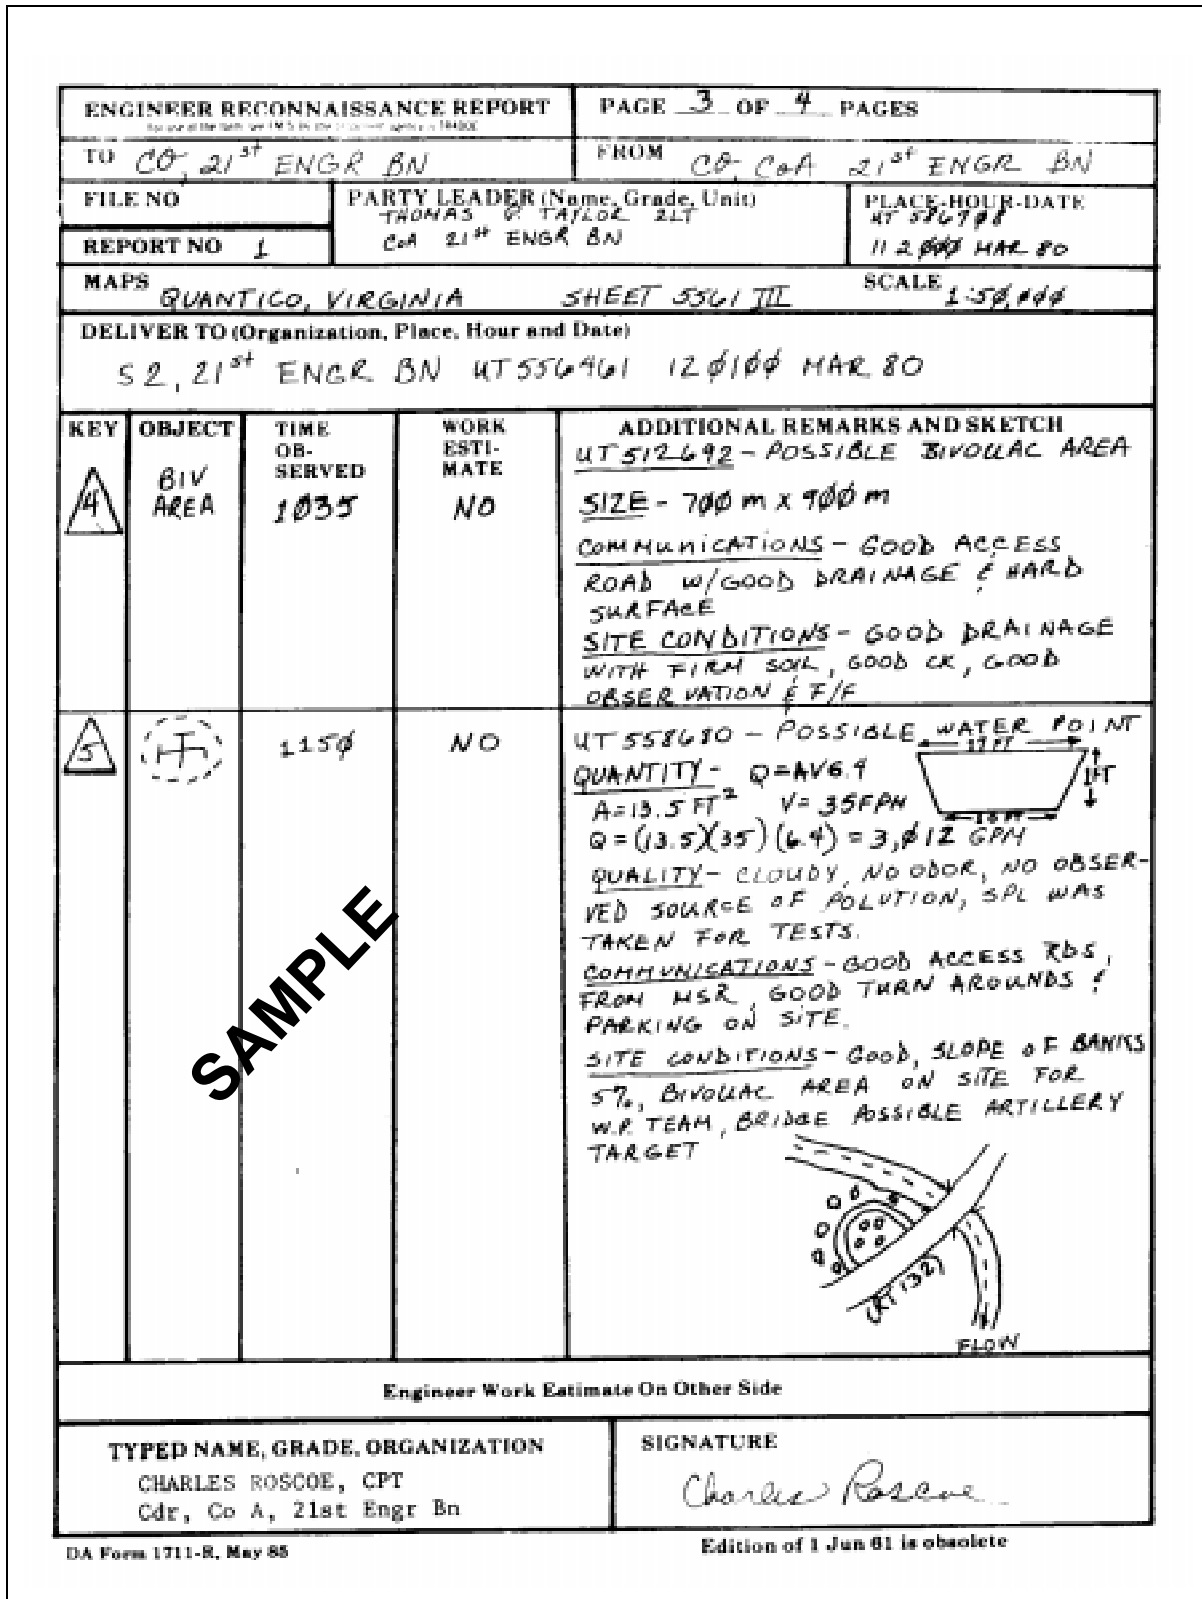 ENGINEER RECONNAISSANCE REPORT
PAGE 3 OF 4 PAGES
TO CO, 21st ENGR BN
FROM CO, CoA 21st ENGR BN
FILE NO
PARTY LEADER (Name, Grade, Unit)
THOMAS G TAYLOR 2LT
CoA 21st ENGR BN
PLACE-HOUR-DATE
UT 586708
112000 MAR 80
REPORT NO 1
MAPS QUANTICO, VIRGINIA SHEET 5561 III
SCALE 1:50,000
DELIVER TO (Organization, Place, Hour and Date)
S2, 21st ENGR BN UT 556461 120100 MAR 80
KEY OBJECT TIME OB-SERVED WORK ESTI-MATE ADDITIONAL REMARKS AND SKETCH
4 BIV AREA 1035 NO
UT 512692 - POSSIBLE BIVOUAC AREA
SIZE - 700 m x 900 m
COMMUNICATIONS - GOOD ACCESS
ROAD W/GOOD DRAINAGE & HARD
SURFACE
SITE CONDITIONS - GOOD DRAINAGE
WITH FIRM SOIL, GOOD CK, GOOD
OBSERVATION & F/F
5 1150 NO
UT 558680 - POSSIBLE WATER POINT
17 FT
1FT
10 FT
QUANTITY - Q=AV6.4
A=13.5 FT2 V=35FPM
Q=(13.5)(35)(6.4)=3,012 GPM
QUALITY - CLOUDY, NO ODOR, NO OBSER-
VED SOURCE OF POLUTION, SPL WAS
TAKEN FOR TESTS.
COMMUNICATIONS - GOOD ACCESS RDS,
FROM MSR, GOOD TURN AROUNDS &
PARKING ON SITE.
SITE CONDITIONS - GOOD, SLOPE OF BANKS
5%, BIVOUAC AREA ON SITE FOR
W.P. TEAM, BRIDGE POSSIBLE ARTILLERY
TARGET
(RT 132)
FLOW
SAMPLE
Engineer Work Estimate On Other Side
TYPED NAME, GRADE, ORGANIZATION
CHARLES ROSCOE, CPT
Cdr, Co A, 21st Engr Bn
SIGNATURE
Charles Roscoe
DA Form 1711-R, May 85
Edition of 1 Jun 61 is obsolete